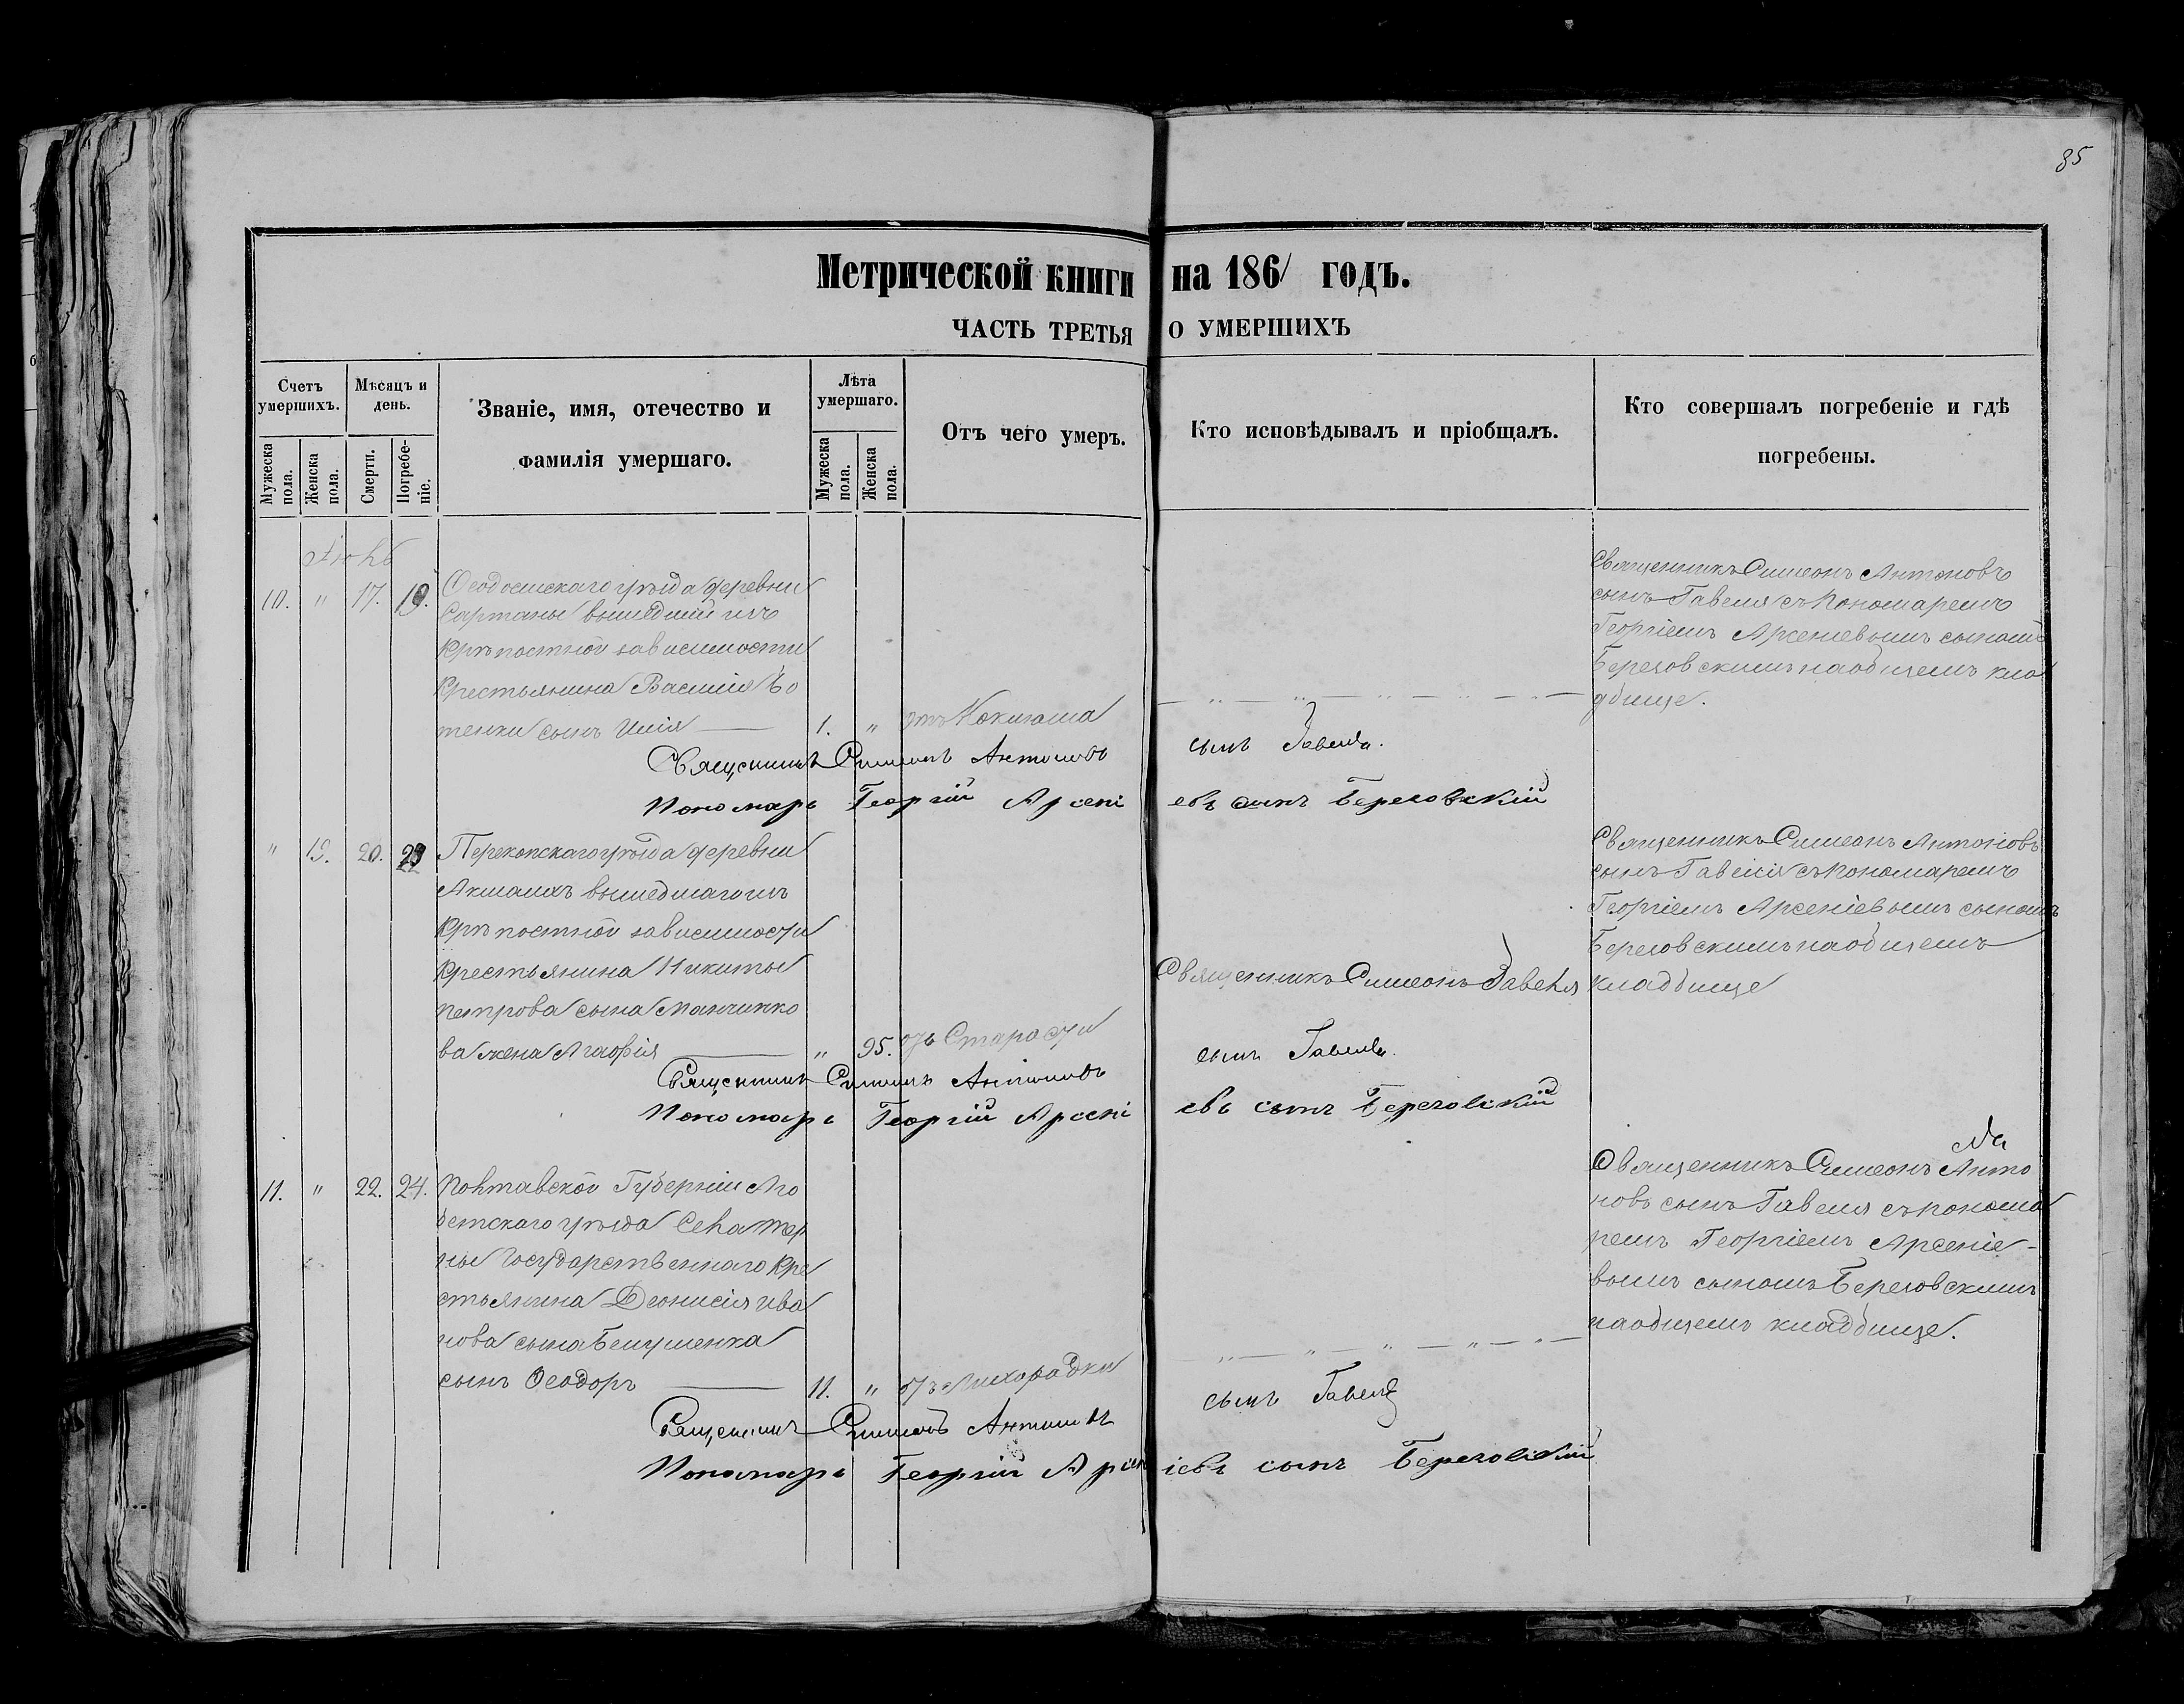 85
Метрической книги на 186/ годъ.
ЧАСТЬ ТРЕТЬЯ О УМЕРШИХЪ
Счетъ умершихъ.
Мѣсяцъ и день.
Званіе, имя, отечество и фамилія умершаго.
Лѣта умершаго.
Отъ чего умеръ.
Кто исповѣдывалъ и пріобщалъ.
Кто совершалъ погребеніе и гдѣ погребены.
Мужеска пола.
Женска пола.
Смерти.
Погребеніе.
Мужеска пола.
Женска пола.
10. " 17. 19.
Ѳеодосискаго уѣзда деревни
Сартаны вышедшій изъ
крѣпостной зависимости
крестьянина Василія
сынъ Илія — 1. "
Священникъ Симеонъ Антоновъ
сынъ Гавеля съ Пономаремъ
Георгіемъ Арсеніевымъ сыномъ
Березовскимъ на общемъ кла
дбище.
Священникъ Симеонъ Антоновъ сынъ Гавеля.
Пономарь Георгій Арсеніевъ сынъ Березовскій
" 19. 20. 22
Перекопскаго уѣзда деревни
вышедшаго изъ
крѣпостной зависимости
крестьянина Никиты
Петрова сына
ва жена Агафія — " 95. отъ Старости
Священникъ Симеонъ Гавеля
Священникъ Симеонъ Антоновъ
сынъ Гавеля съ Пономаремъ
Георгіемъ Арсеніевымъ сыномъ
Березовскимъ на общемъ
кладбище
Священникъ Симеонъ Антоновъ сынъ Гавеля.
Пономарь Георгій Арсеніевъ сынъ Березовскій
11. " 22. 24.
Полтавской Губерніи
уѣзда Села Тер
ны Государственнаго кре
стьянина Діонисія Ива
нова сына
сынъ Ѳеодоръ — 11. " отъ Лихорадки
Священникъ Симеонъ Анто
новъ сынъ Гавеля съ Понома
ремъ Георгіемъ Арсеніе-
вымъ сыномъ Березовскимъ
на общемъ кладбище.
Священникъ Симеонъ Антоновъ сынъ Гавеля
Пономарь Георгій Арсеніевъ сынъ Березовскій